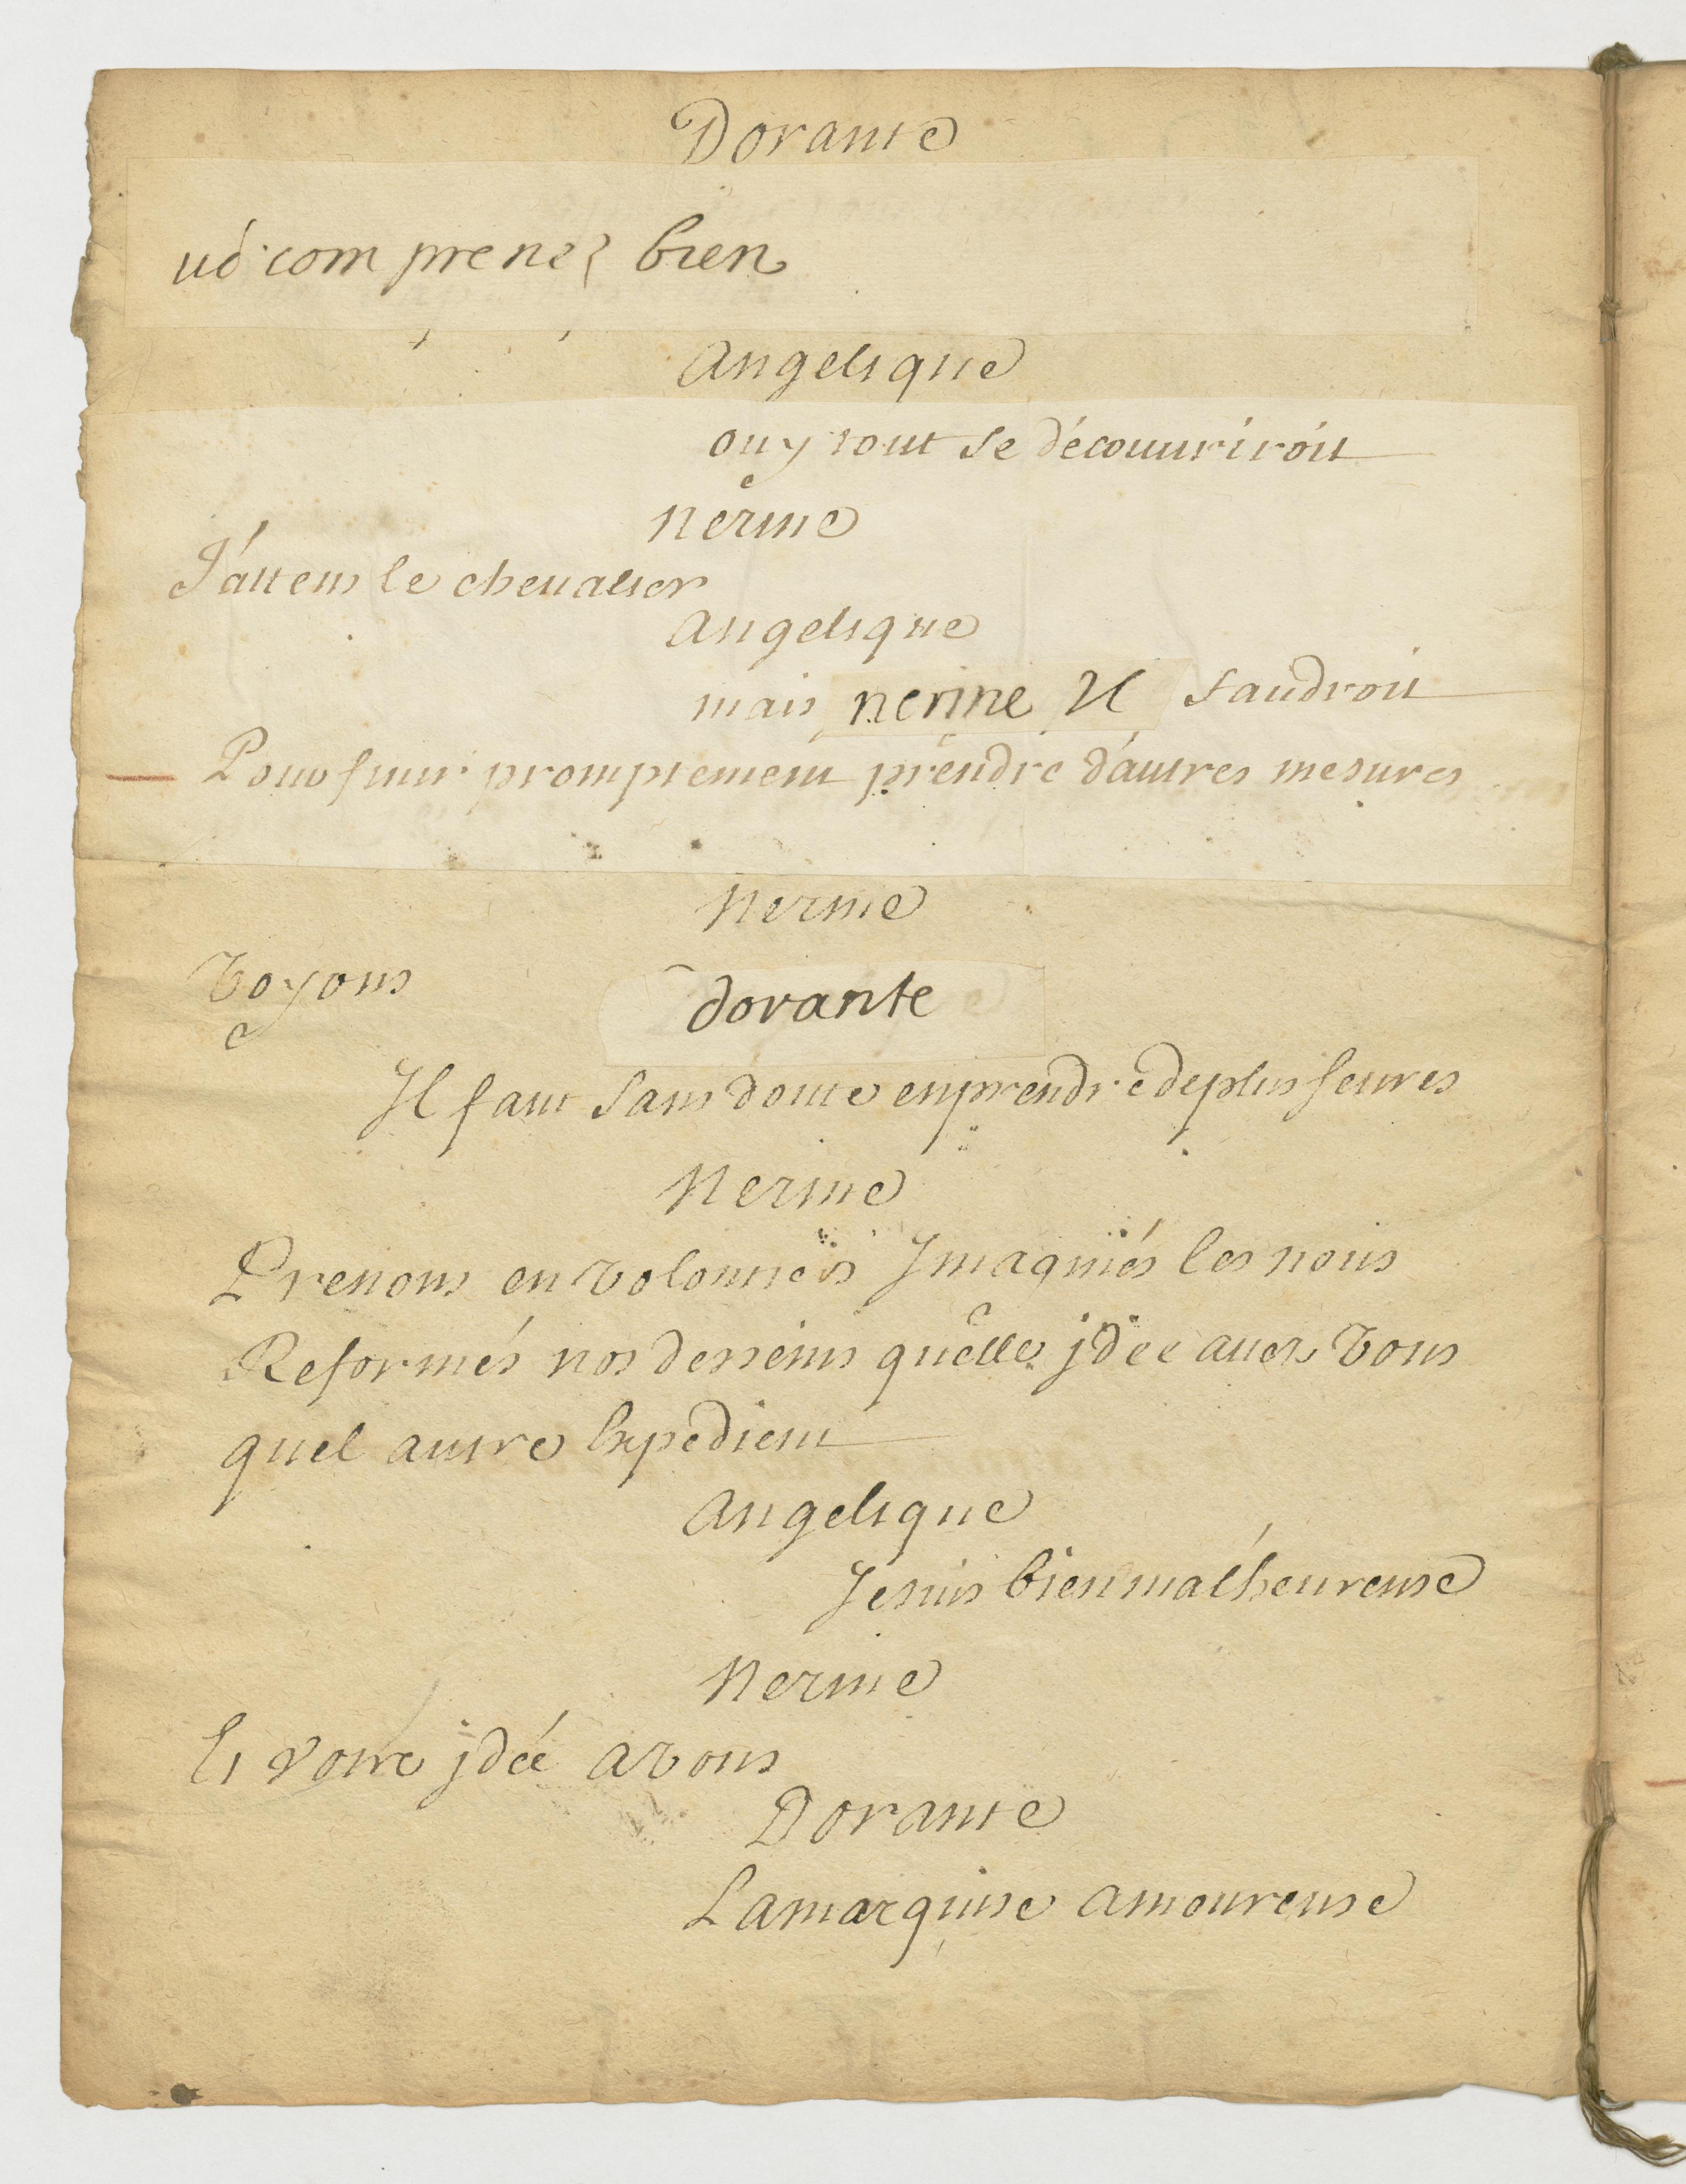 Dorante
uo comprenez bien
Angelique
ouy tout se découuriroit
Nerine
J'attens le cheualier
Angelique
mais nerine Il faudroit
Pour finir promptement prendre d'autres mesures
Nerine
Voyons
dorante
Il faut sans doute en prendre de plus seures
Nerine
Prenons en volontiés Imaginés les nous
Reformés nos desseins quelle jdée auez Vous
quel autre Expedient
Angelique
Je suis bien malheureuse
Nerine
Et votre jdée a vous
Dorante
La marquise amoureuse